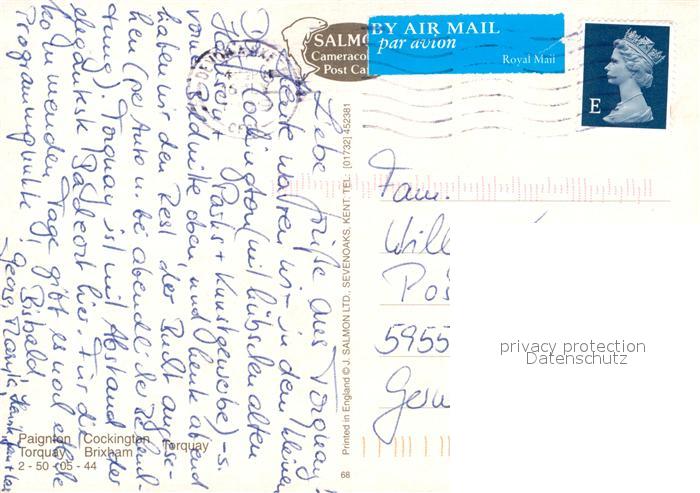 SALMO
Cameracol
Post Ca
BY AIR MAIL
par avion
Royal Mail
E
Liebe Grüße aus Torquay!
Heute waren wir in dem kleinen
Dorf Cockington (mit hübschen alten
Häusern + Parks + Kunstgewerbe) - s.
vorne Bildmitte oben und heute abend
haben wir den Rest der Bucht angese-
hen (per Auto u. bei abendlicher
). Torquay ist mit Abstand der
eleganteste Badeort hier. Für die
kommenden Tage gibt es noch etliche
Programmpunkte! Bis bald
Georg,
Fam.
Will
Pos
5955
Germ
Printed in England © J. SALMON LTD., SEVENOAKS, KENT. TEL: [01732] 452381
68
Paignton Cockington Torquay
Torquay Brixham
2 - 50 - 05 - 44
privacy protection
Datenschutz